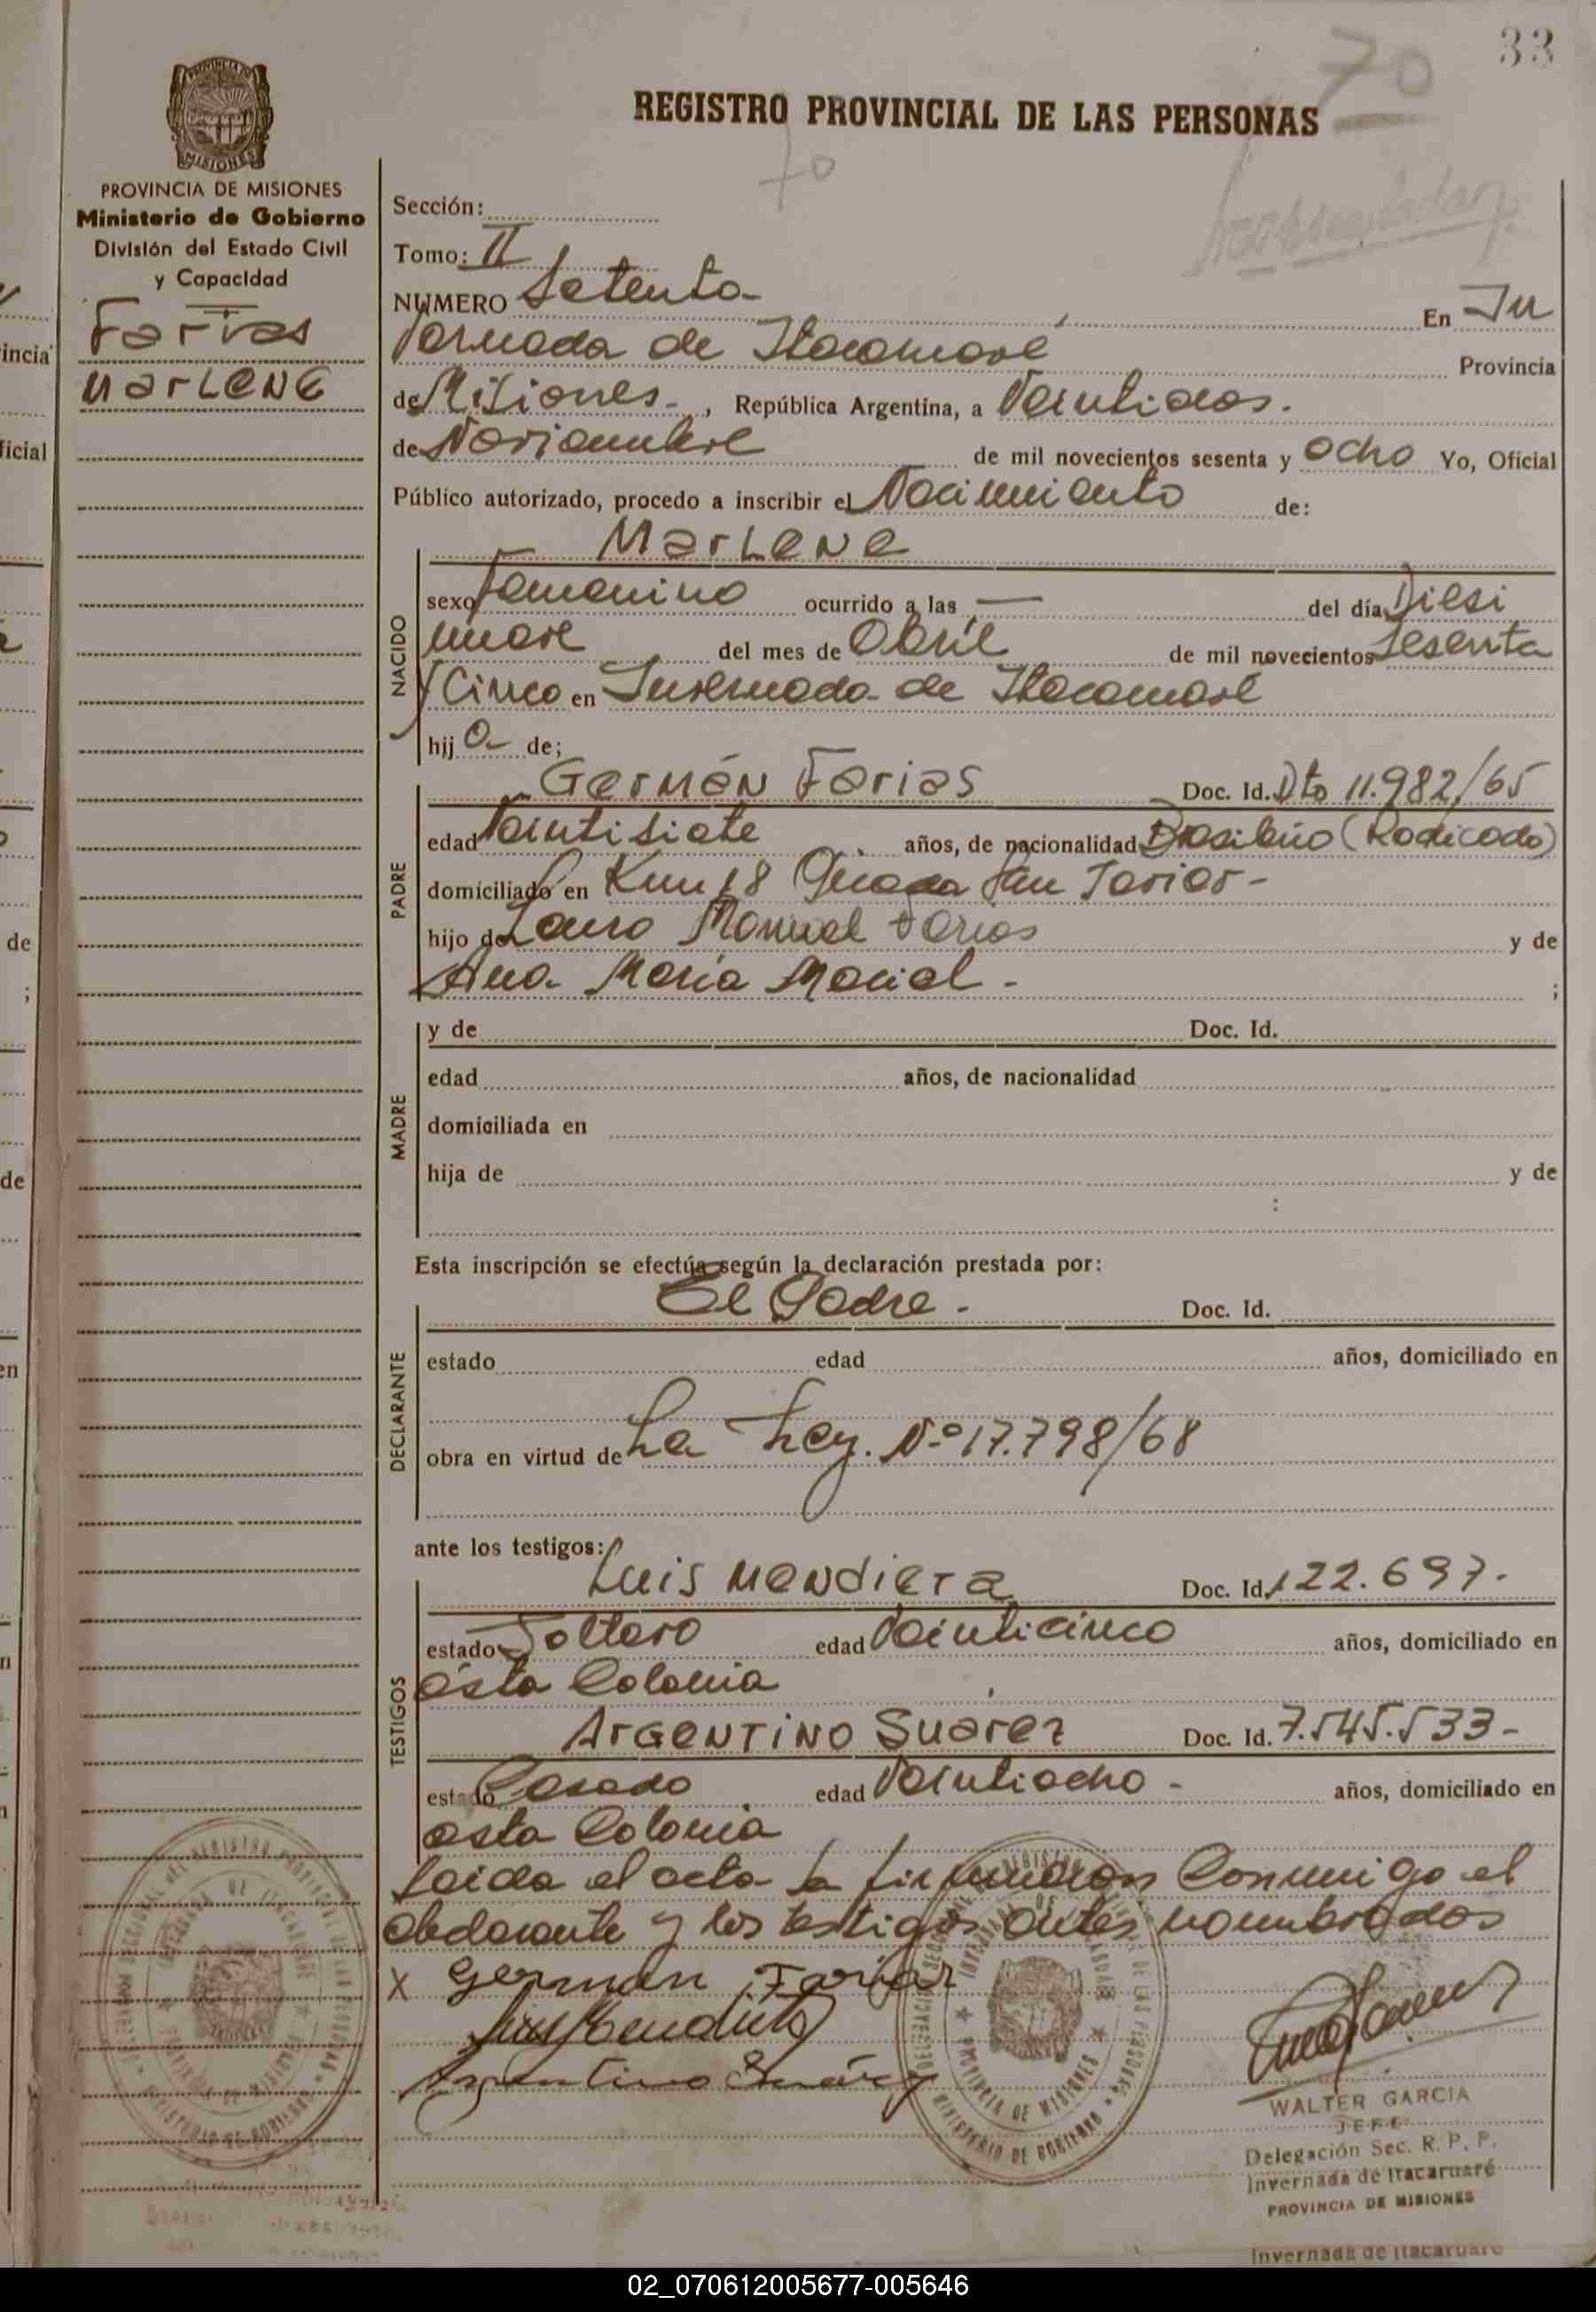 33
70
REGISTRO PROVINCIAL DE LAS PERSONAS
70
PROVINCIA DE MISIONES
Ministerio de Gobierno
División del Estado Civil
y Capacidad
Farias
MarLENE
Sección:
Tomo: II
NUMERO Setenta En In
vernada de Itacaruaré Provincia
de Misiones, República Argentina, a Veintidos.
de Noviembre de mil novecientos sesenta y ocho Yo, Oficial
Público autorizado, procedo a inscribir el Nacimiento de:
MarLeNe
NACIDO
sexo Femenino ocurrido a las — del día Diesi
nueve del mes de Abril de mil novecientos Sesenta
y Cinco en Invernada de Itacaruaré
hij a de;
PADRE
Germán Farias Doc. Id. Dto 11.982/65
edad Veintisiete años, de nacionalidad Brasileño (Radicado)
domiciliado en Km 18 Picada San Javier-
hijo de Lauro Manuel Farias y de
Ana Maria Maciel - ;
MADRE
y de Doc. Id.
edad años, de nacionalidad
domiciliada en
hija de y de
:
Esta inscripción se efectúa según la declaración prestada por:
DECLARANTE
El Padre. Doc. Id.
estado edad años, domiciliado en
obra en virtud de La Ley. Nº 17.798/68
ante los testigos:
TESTIGOS
Luis MeNdieta Doc. Id. 122.697.
estado Soltero edad Veinticinco años, domiciliado en
ésta Colonia
ArGeNTiNo Suarez Doc. Id. 7.545.533-
estado Casado edad Veintiocho - años, domiciliado en
esta Colonia
Leida el acta la firmaron Conmigo el
declarante y los testigos antes nombrados
X German Farias
Argentino Suárez
WALTER GARCIA
JEFE
Delegación Sec. R. P. P.
Invernada de Itacaruaré
PROVINCIA DE MISIONES
Invernada de Itacaruaré
02_070612005677-005646